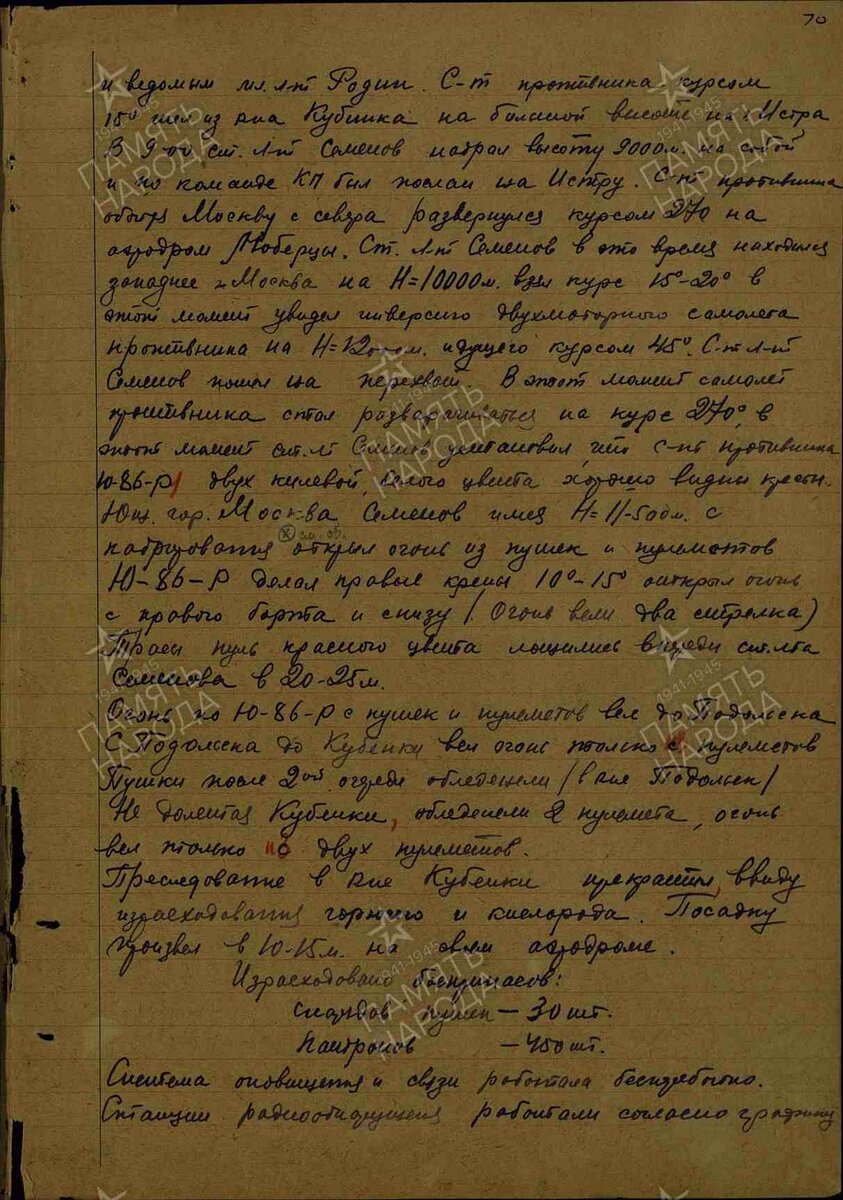 70
и ведомым мл. л-т Родин. С-т противника курсом
15° шел из р-на Кубинка на большой высоте на г. Истра
В 9-00 ст. л-т Семенов набрал высоту 9000 м. на собой
и по команде КП был послан на Истру. С-т противника
обойдя Москву с севера развернулся курсом 270 на
аэродром Люберцы. Ст. л-т Семенов в это время находился
западнее г. Москва на Н=10000 м. взял курс 15°-20° в
этот момент увидел инверсию двухмоторного самолета
противника на Н=12000 м. идущего курсом 45°. Ст л-т
Семенов пошел на перехват. В этот момент самолет
противника стал разварачиваться на курс 270°, в
этот момент ст. л-т Семенов установил, что с-т противника
Ю-86-Р/ двух килевой, белого цвета хорошо видны кресты.
Южн. гор. Москва Семенов имея Н=11-500 м. с
(х) см. об.
кабрирования открыл огонь из пушек и пулеметов
Ю-86-Р делал правые крены 10°-15° открыл огонь
с правого борта и снизу /. Огонь вели два стрелка)
Трасы пуль красного цвета ложились впереди ст. л-та
Семенова в 20-25 м.
Огонь по Ю-86-Р с пушек и пулеметов вел до Подольска
С Подольска до Кубенки вел огонь только с пулеметов
Пушки после 2ой очереди обледенели / в р-не Подольск /
Не долетая Кубенки, обледенели 2 пулемета, огонь
вел только из двух пулеметов.
Преследование в р-не Кубенки прекратил, ввиду
израсходования горючего и кислорода. Посадку
произвел в 10-15 м. на своем аэродроме.
Израсходовано боеприпасов:
Снарядов пушек – 30 шт.
Патронов – 450 шт.
Система оповещения и связи работала бесперебойно.
Станции радионаведения работали согласно графику
ПАМЯТЬ НАРОДА
1941-1945